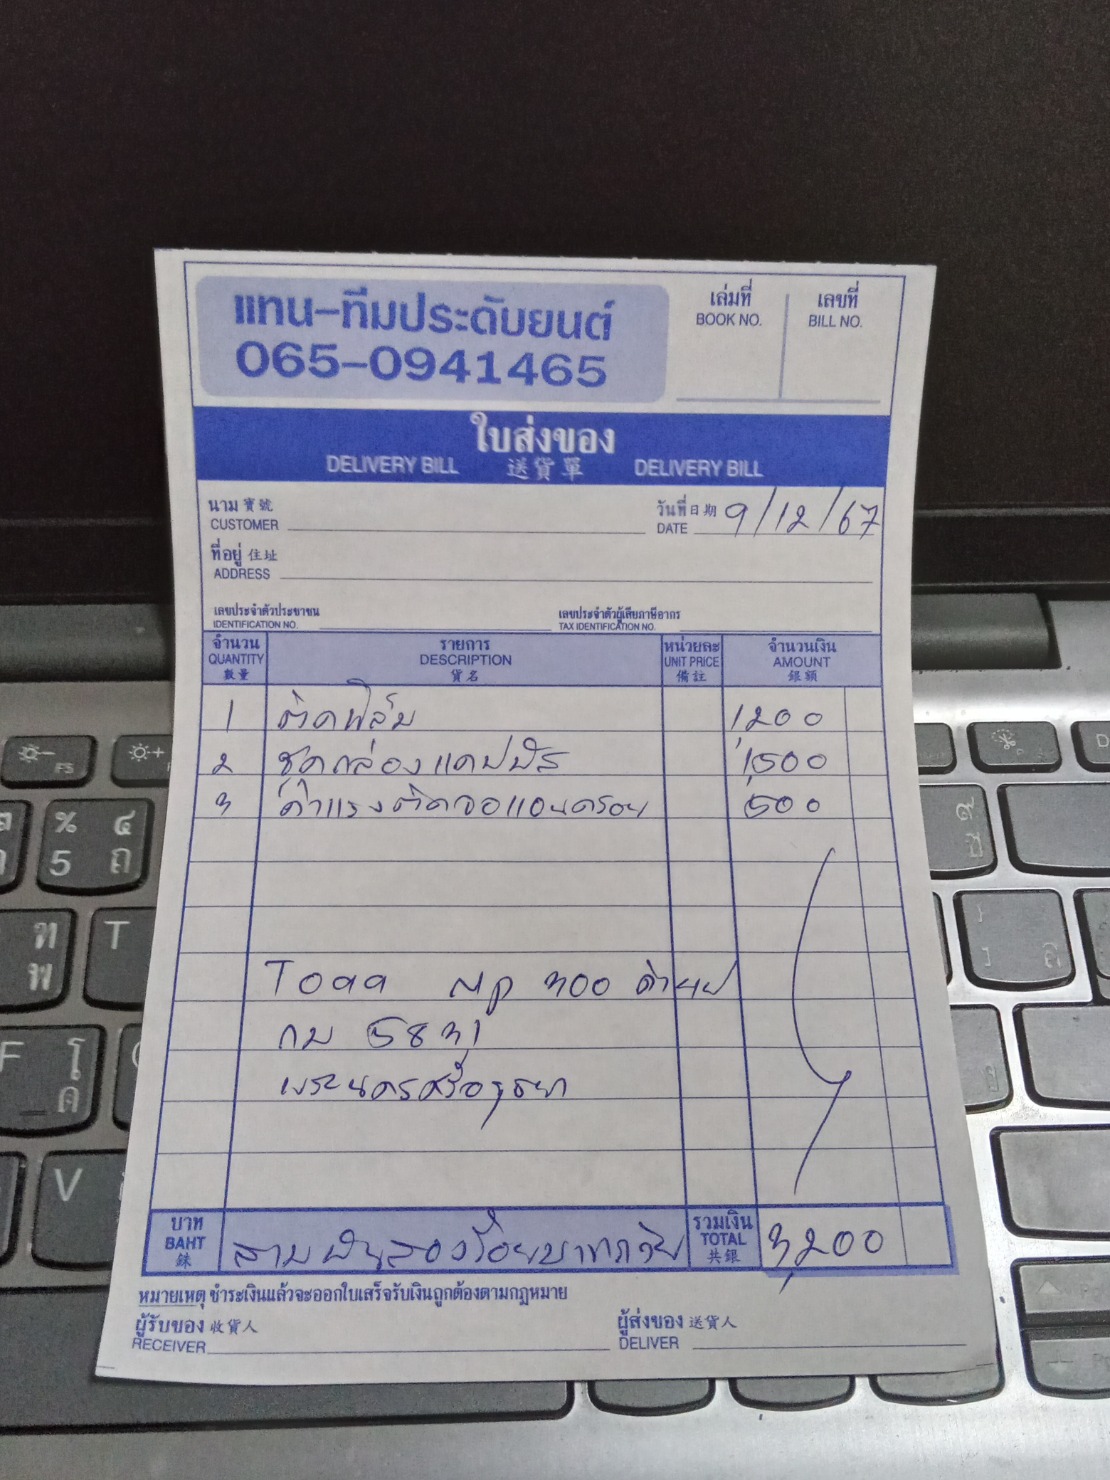 แทน-ทีมประดับยนต์
065-0941465
เล่มที่
BOOK NO.
เลขที่
BILL NO.
ใบส่งของ
DELIVERY BILL 送貨單 DELIVERY BILL
นาม 寶號
CUSTOMER
วันที่ 日期
DATE 9/12/67
ที่อยู่ 住址
ADDRESS
เลขประจำตัวประชาชน
IDENTIFICATION NO.
เลขประจำตัวผู้เสียภาษีอากร
TAX IDENTIFICATION NO.
จำนวน รายการ หน่วยละ จำนวนเงิน
QUANTITY DESCRIPTION UNIT PRICE AMOUNT
數量 貨名 備註 銀額
1 ติดฟิล์ม 1200
2 ชุดกล่องแคปบัส 1,500
3 ค่าแรงติดจอแอนดรอย 500
กม 5831
พระนครศรีอยุธยา
บาท
BAHT
銖
สามพันสองร้อยบาทถ้วน
รวมเงิน
TOTAL
共銀
3,200
หมายเหตุ ชำระเงินแล้วจะออกใบเสร็จรับเงินถูกต้องตามกฎหมาย
ผู้รับของ 收貨人
RECEIVER
ผู้ส่งของ 送貨人
DELIVER